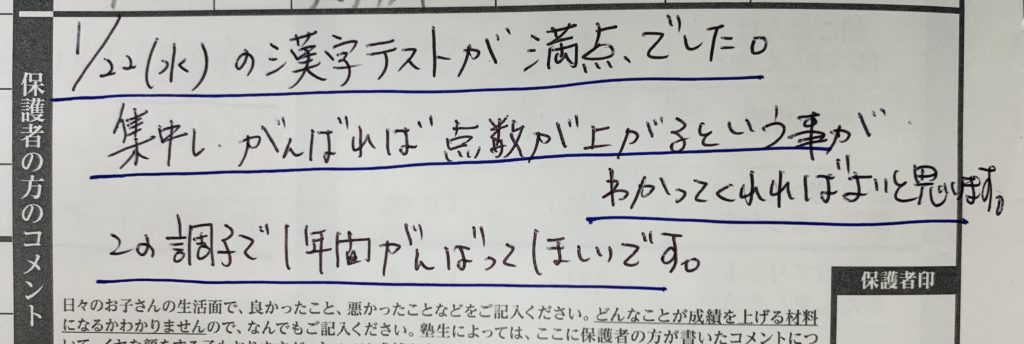 保護者の方のコメント
1/22(水)の漢字テストが満点、でした。
集中し、がんばれば点数が上がるという事が
わかってくれればよいと思います。
この調子で1年間がんばってほしいです。
保護者印
日々のお子さんの生活面で、良かったこと、悪かったことなどをご記入ください。どんなことが成績を上げる材料
になるかわかりませんので、なんでもご記入ください。塾生によっては、ここに保護者の方が書いたコメントにつ